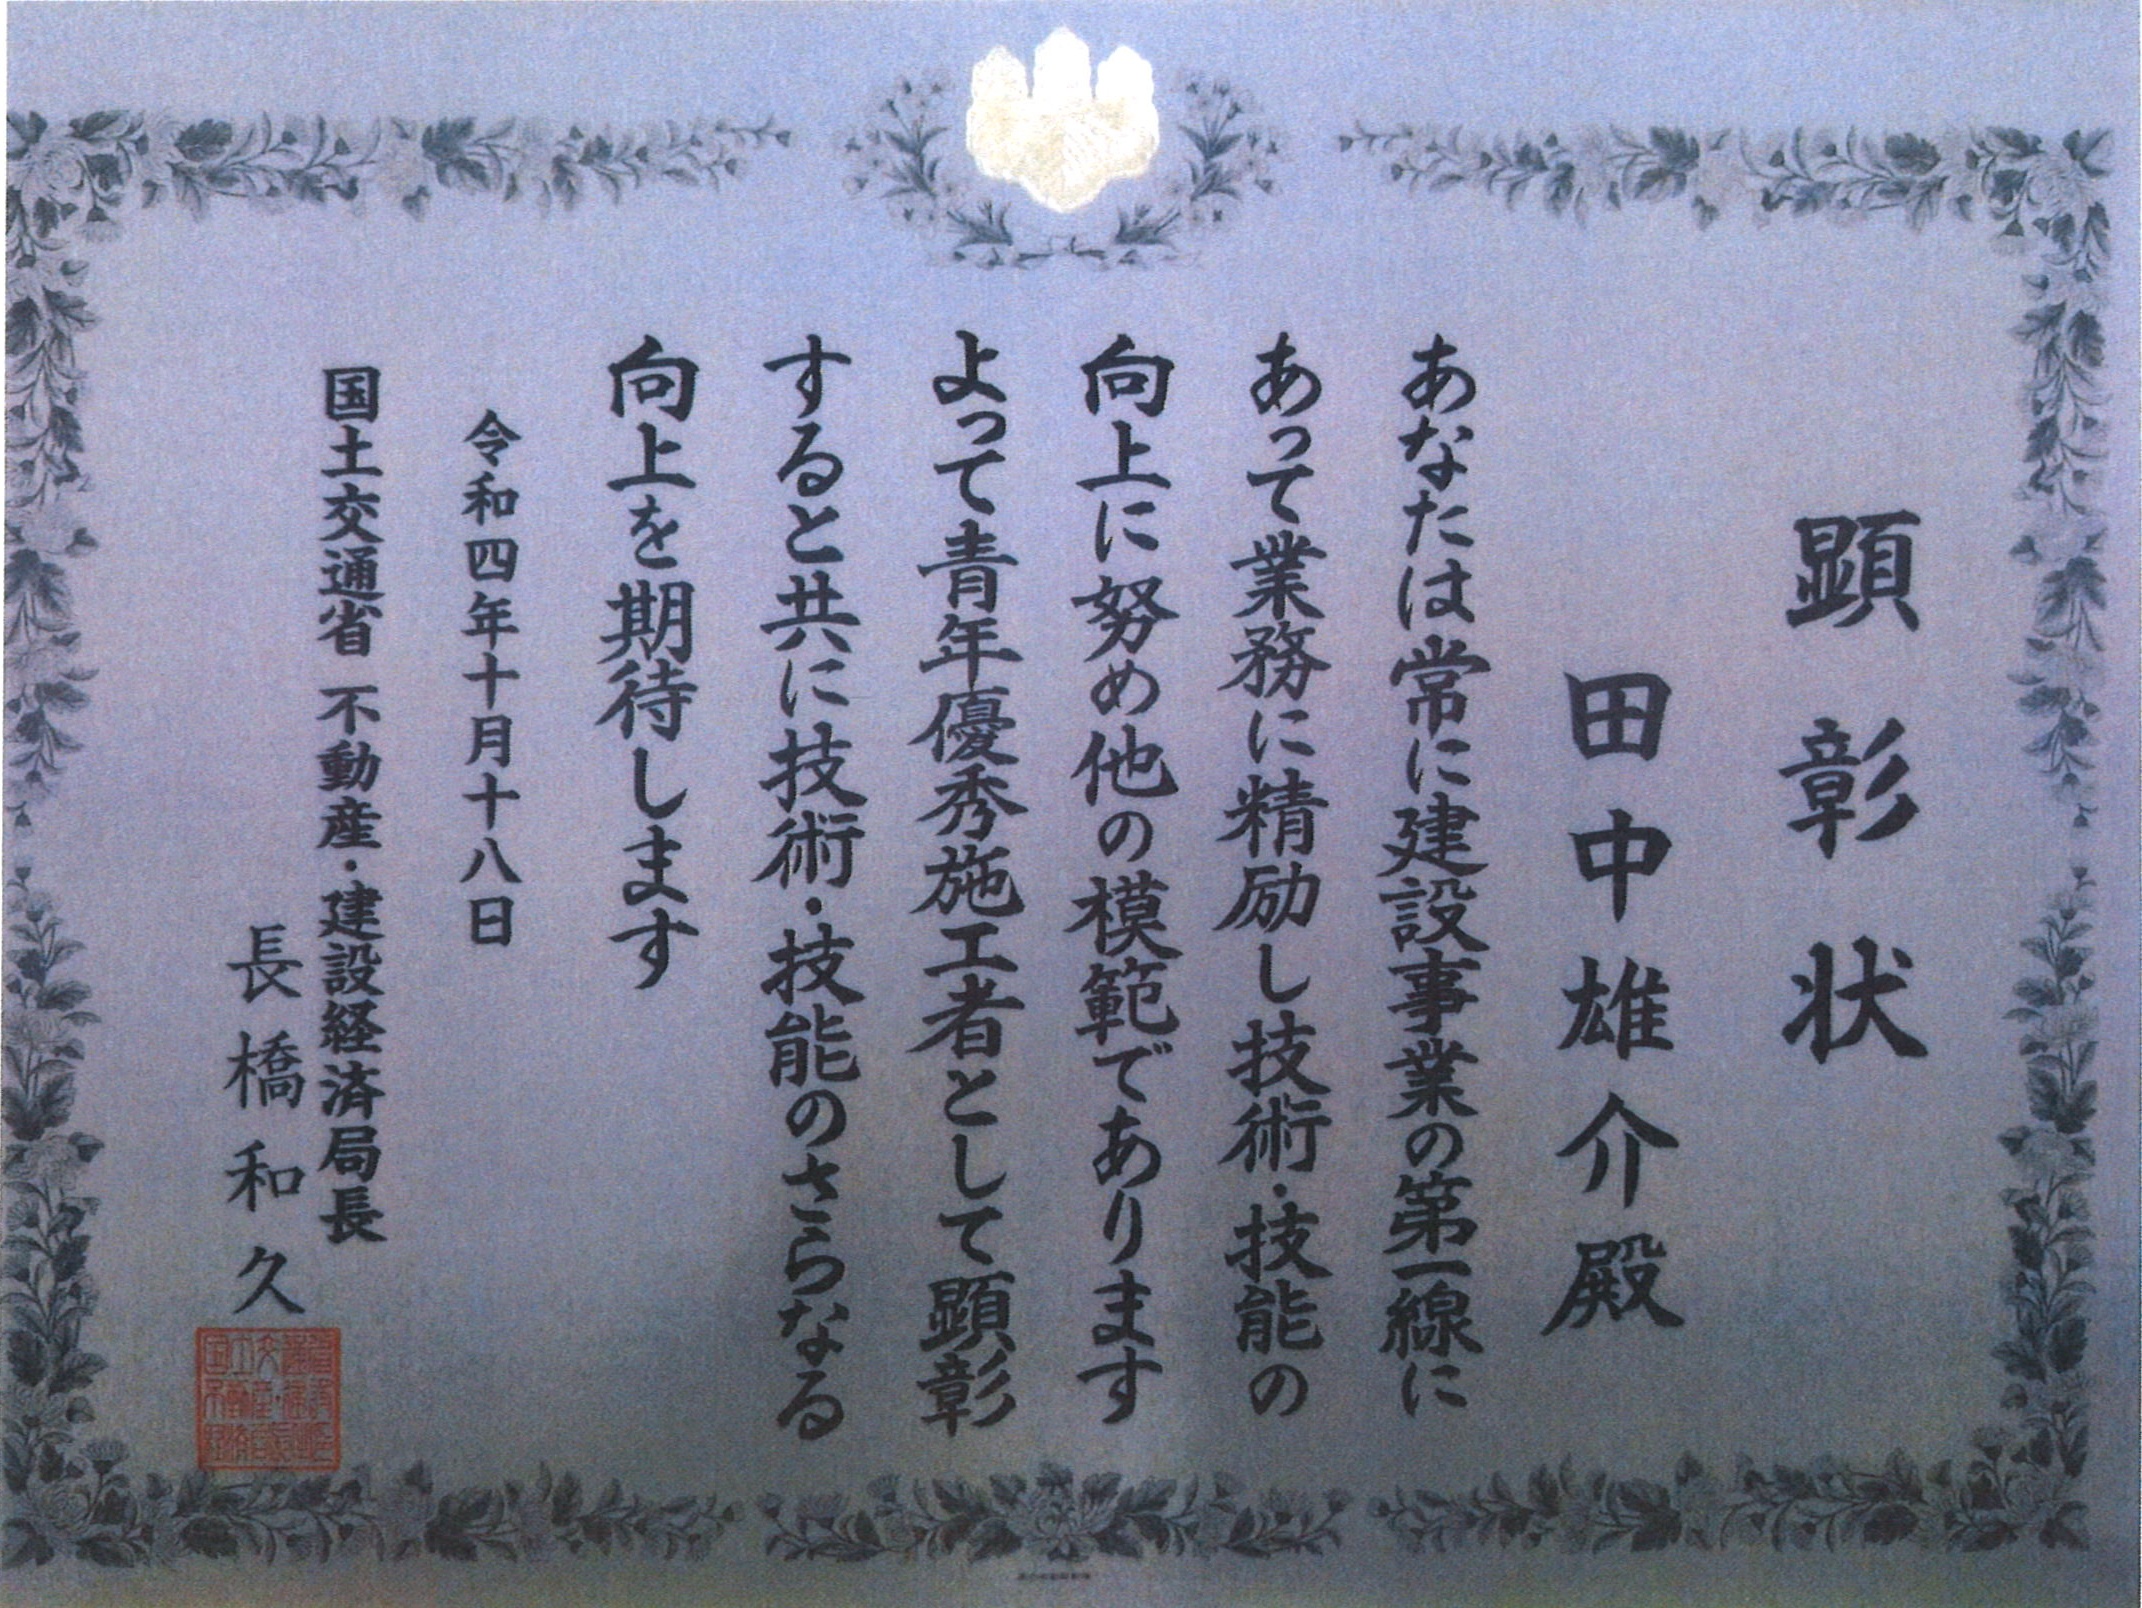 顕彰状
田中雄介殿
あなたは常に建設事業の第一線に
あって業務に精励し技術・技能の
向上に努め他の模範であります
よって青年優秀施工者として顕彰
すると共に技術・技能のさらなる
向上を期待します
令和四年十月十八日
国土交通省 不動産・建設経済局長
長橋和久